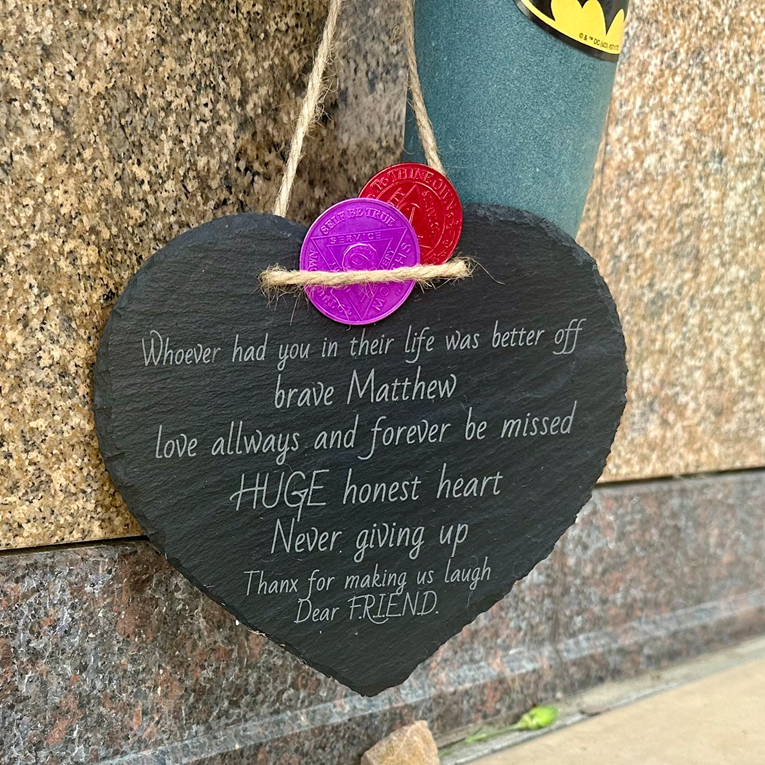 © & ™ DC
TO THINE OWN
SELF BE TRUE
SERVICE
9
MONTHS
Whoever had you in their life was better off
brave Matthew
love allways and forever be missed
HUGE honest heart
Never giving up
Thanx for making us laugh
Dear F.R.I.E.N.D.